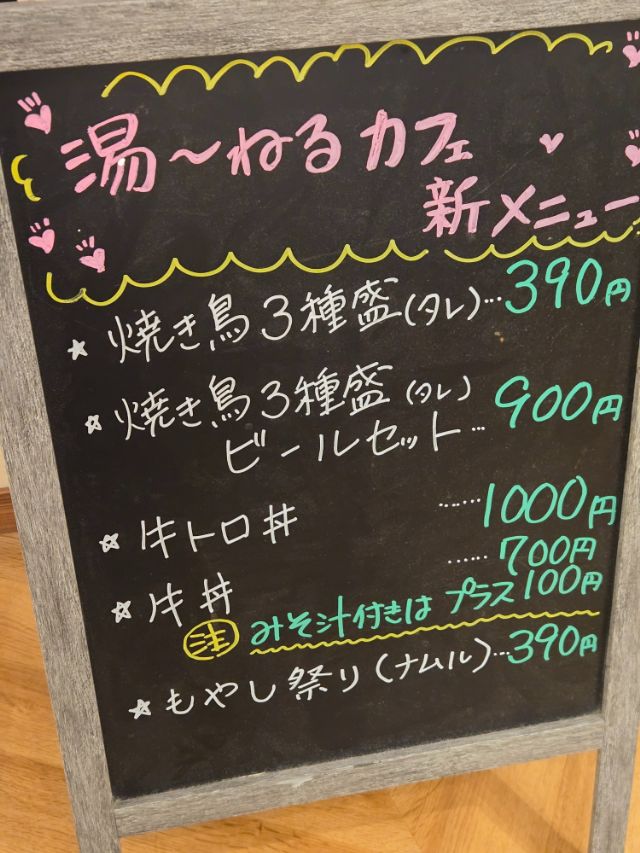 湯～ねるカフェ
新メニュー
☆焼き鳥3種盛(タレ)…390円
☆焼き鳥3種盛(タレ)
ビールセット…900円
☆牛トロ丼……1000円
☆牛丼……700円
注 みそ汁付きはプラス100円
☆もやし祭り(ナムル)…390円